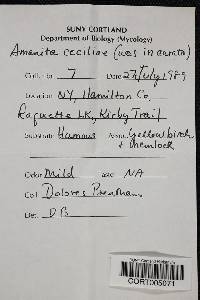 SUNY CORTLAND
Department of Biology (Mycology)
Amanita ceciliae (was inaurata)
Coll. no 7 Date 27 July 1989
Location NY, Hamilton Co,
Raquette LK, Kirby Trail
Substrate Hummus Assoc. Yellow birch
+ hemlock
Odor Mild NA
Col Dolores
Det. DB
CORT005071